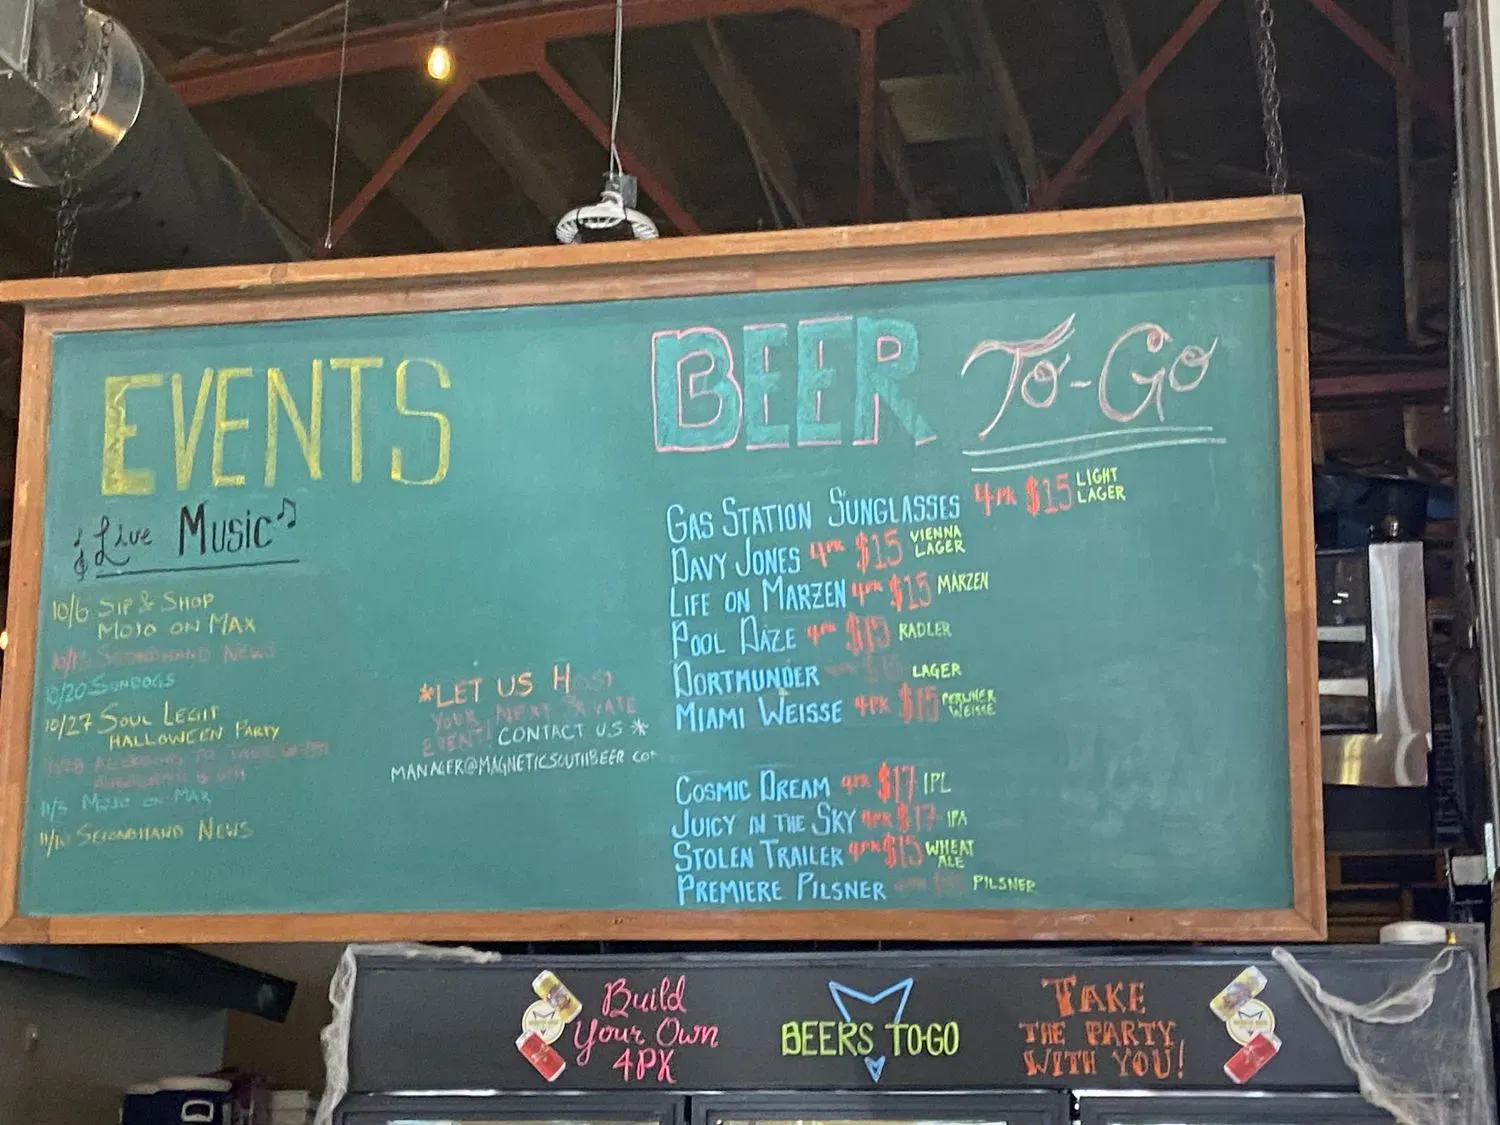 EVENTS
Live Music
10/6 SIP & SHOP
MOJO ON MAX
SECONDHAND NEWS
10/20 SUNDOGS
10/27 SOUL LEGIT
HALLOWEEN PARTY
11/3 MOJO ON MAX
11/10 SECONDHAND NEWS
*LET US HOST
YOUR NEXT PRIVATE
EVENT! CONTACT US *
MANAGER@MAGNETICSOUTHBEER.COM
BEER TO-GO
GAS STATION SUNGLASSES 4PK $15 LIGHT LAGER
DAVY JONES 4PK $15 VIENNA LAGER
LIFE ON MARZEN 4PK $15 MÄRZEN
POOL DAZE 4PK $15 RADLER
DORTMUNDER LAGER
MIAMI WEISSE 4PK $15 WEISSE
COSMIC DREAM 4PK $17 IPL
JUICY IN THE SKY 4PK $17 IPA
STOLEN TRAILER 4PK $15 WHEAT ALE
PREMIERE PILSNER PILSNER
Build
Your Own
4PK
BEERS TO-GO
TAKE
THE PARTY
WITH YOU!